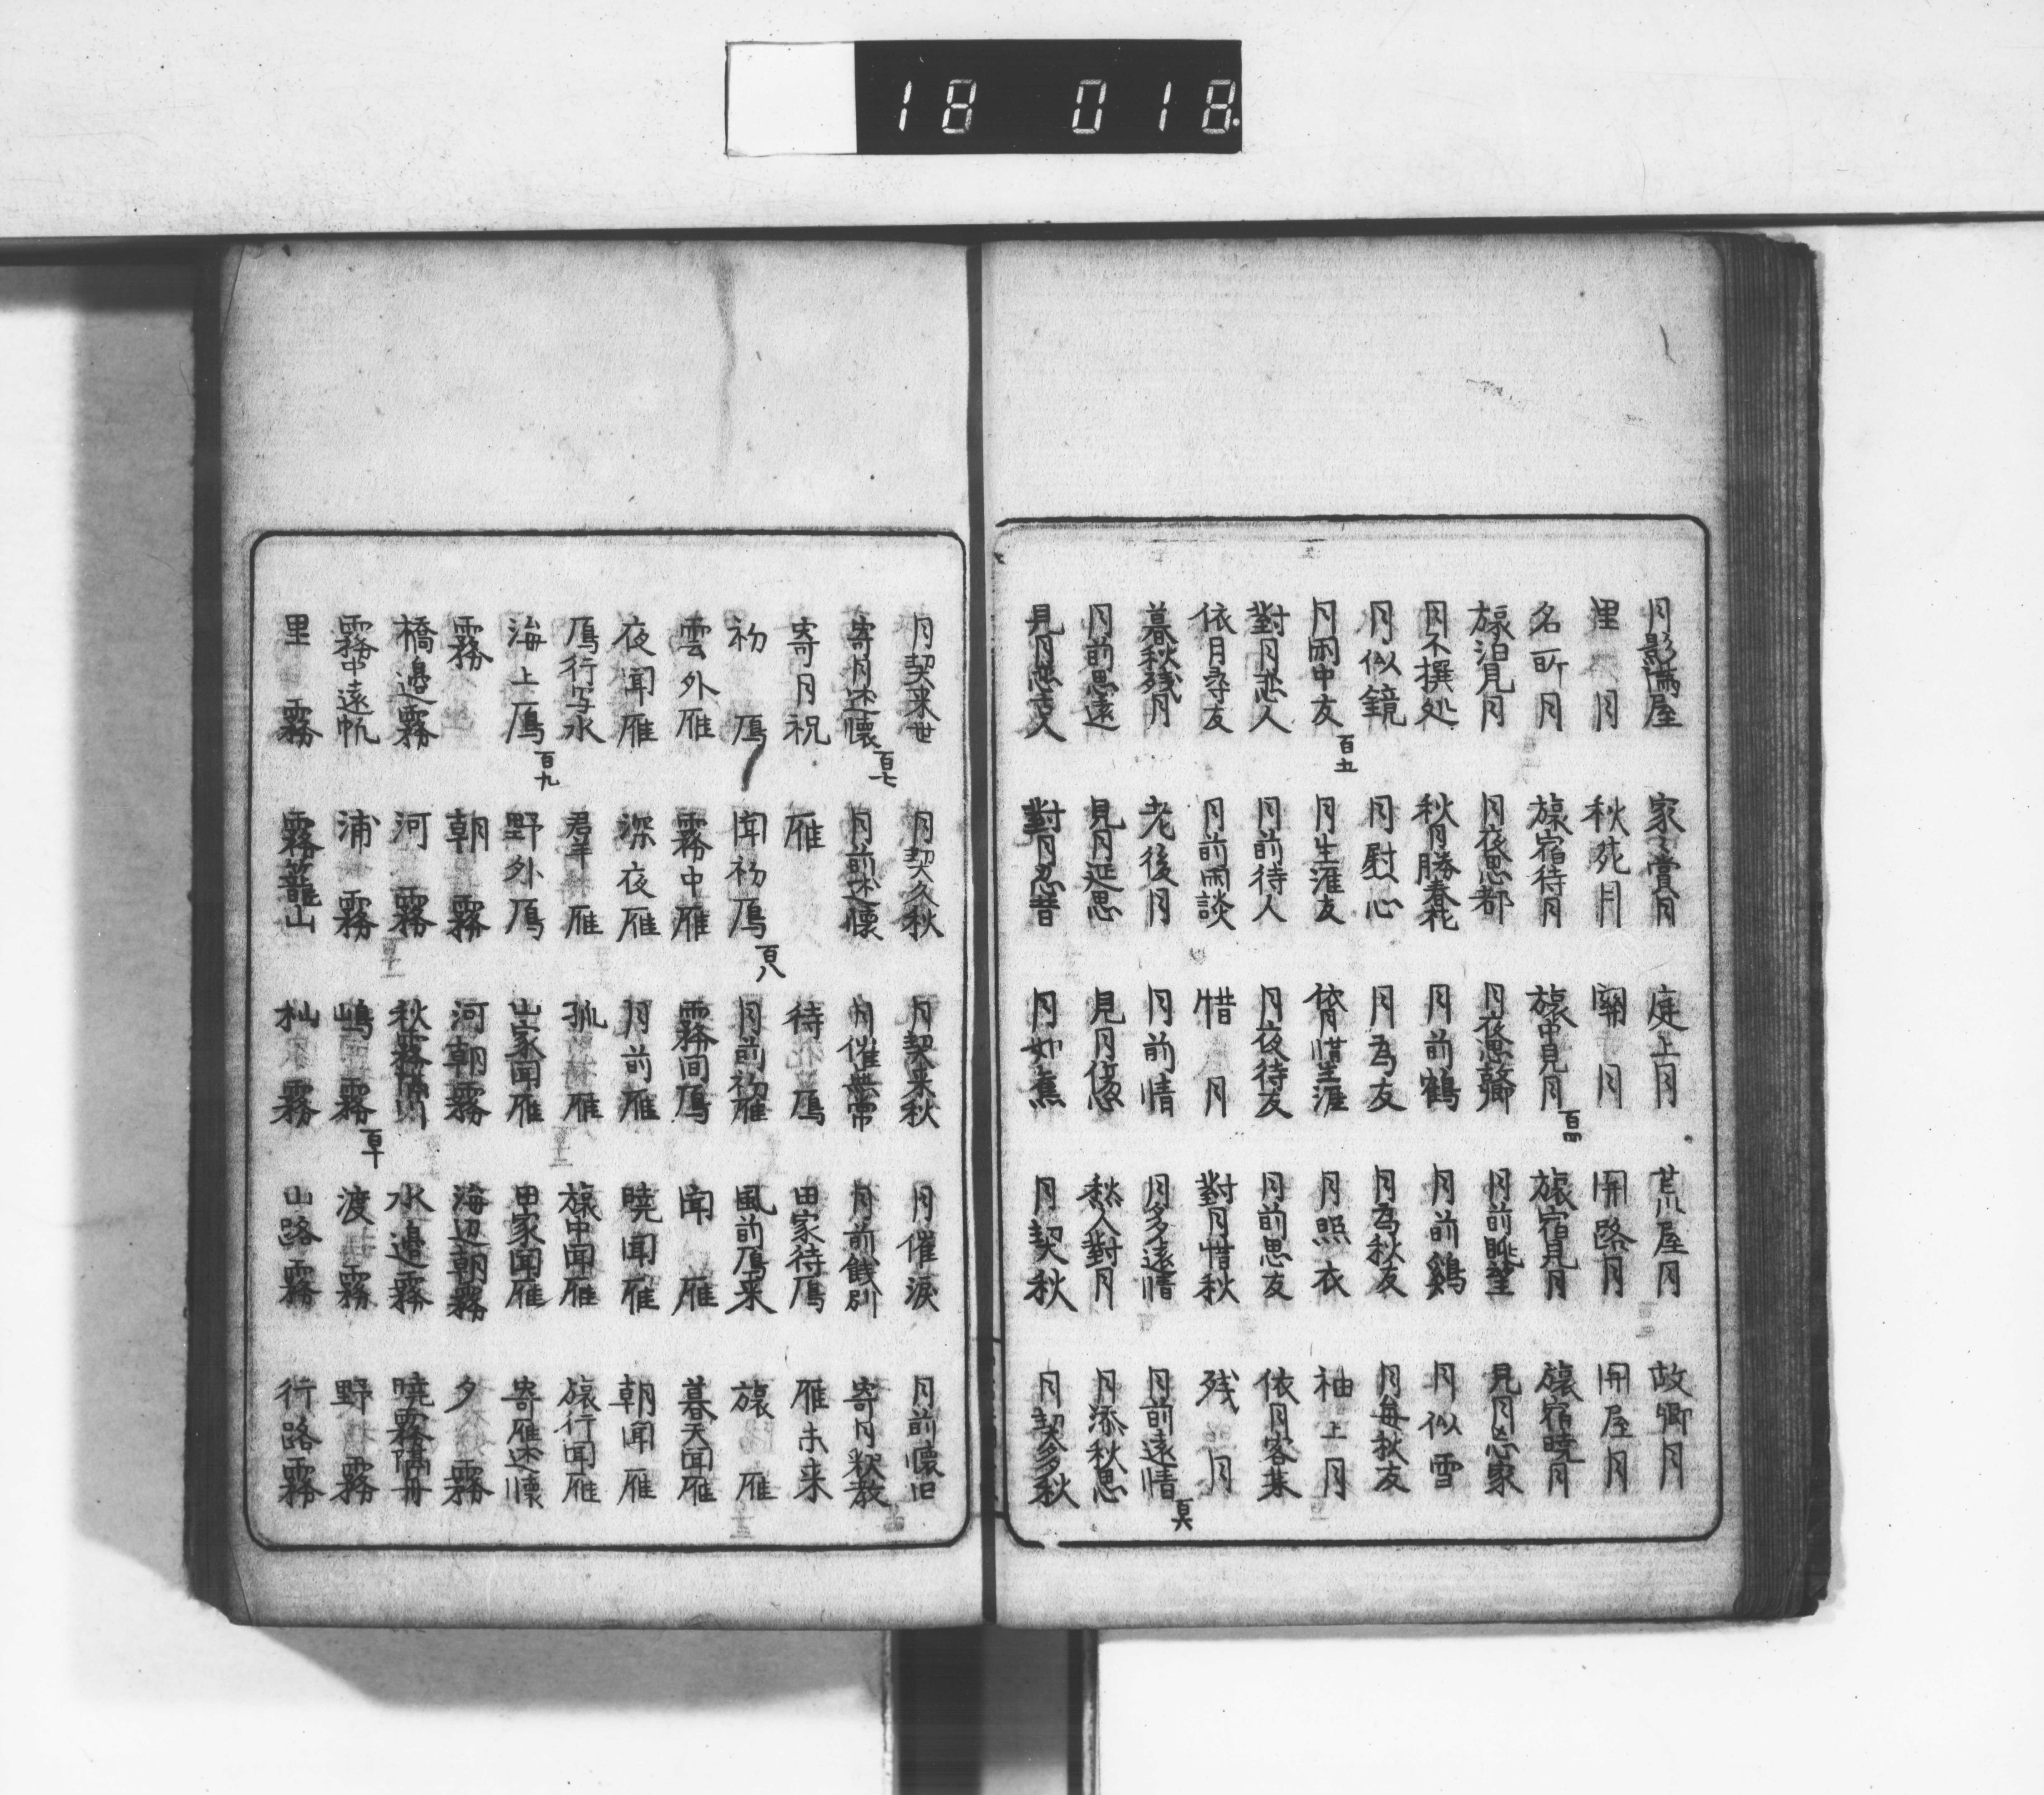 18 018
月影満屋 家々賞月 庭上月 荒屋月 故郷月
里月 秋苑月 関月 関路月 関屋月
名所月 旅宿待月 旅中見月 百四 旅宿見月 旅宿暁月
旅泊見月 月夜思都 月夜思郷 月前眺望 見月忘家
月不撰処 秋月勝春花 月前鶴 月前鶏 月似雪
月似鏡 月慰心 月為友 月為秋友 月毎秋友
月雨中友 百五 月生涯友 依月惜生涯 月照衣 袖上月
對月恋人 月前待人 月夜待友 月前思友 依月客来
依月尋友 月前雨談 惜月 對月惜秋 残月
暮秋残月 老後月 月前情 月多遠情 月前遠情 百六
月前思遠 見月延思 見月 愁人對月 月添秋思
見月恋友 對月忍昔 月如 月契秋 月契多秋
月契来世 月契久秋 月契来秋 月催涙 月前懐旧
寄月述懐 百七 月前述懐 月催無常 月前餞別 寄月釈教
寄月祝 雁 待鴈 田家待鴈 雁未来
初鴈 聞初鴈 百八 月前初雁 風前鴈来 旅雁
雲外雁 霧中雁 霧間鴈 聞雁 暮天聞雁
夜聞雁 深夜雁 月前雁 暁聞雁 朝聞雁
鴈行写水 群雁 孤雁 旅中聞雁 旅行聞雁
海上鴈 百九 野外鴈 山家聞雁 田家聞雁 寄雁述懐
霧 朝霧 河朝霧 海辺朝霧 夕霧
橋邊霧 河霧 秋霧隔川 水邊霧 暁霧隔舟
霧中遠帆 浦霧 嶋霧 百十 渡霧 野霧
里霧 霧籠山 杣霧 山路霧 行路霧